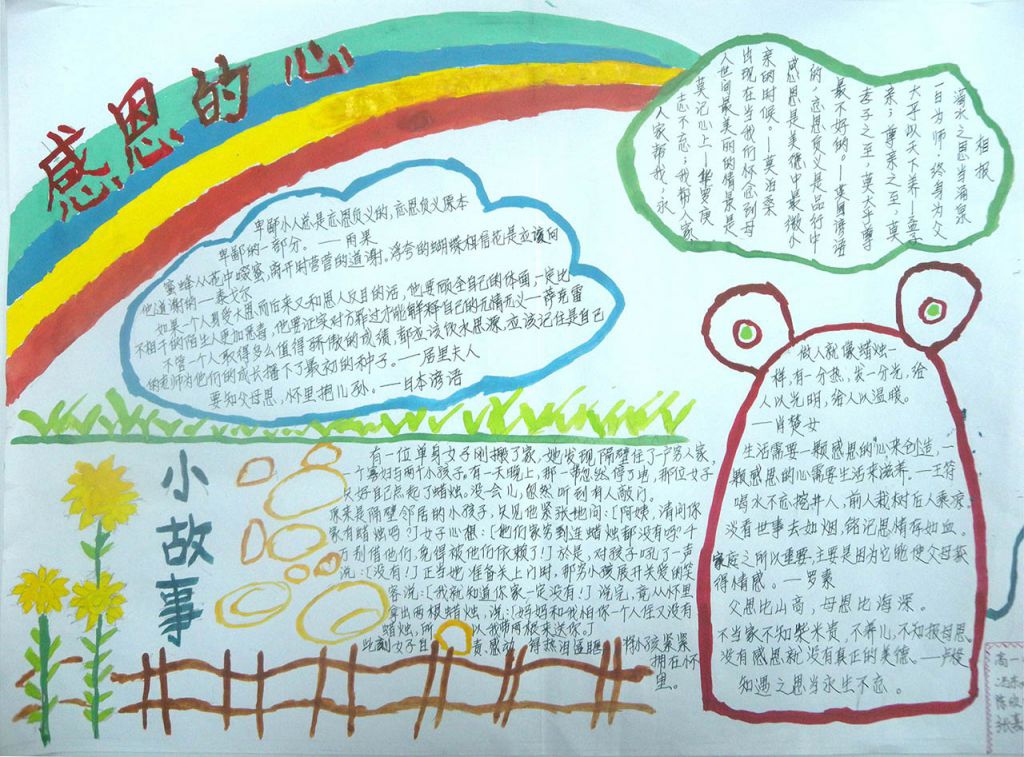 感恩的心
卑鄙小人总是忘恩负义的,忘恩负义原本
卑鄙的一部分。——雨果
蜜蜂从花中啜蜜,离开时营营的道谢。浮夸的蝴蝶相信花是应该向
他道谢的——泰戈尔
如果一个人身受大恩而后来又和恩人反目的话,他要顾全自己的体面,一定比
不相干的陌生人更加恶毒,他要证实对方罪过才能解释自己的无情无义——莎克雷
不管一个人取得多么值得骄傲的成绩,都应该饮水思源,应该记住是自己
的老师为他们的成长播下了最初的种子。——居里夫人
要知父母恩,怀里抱儿孙。——日本谚语
相报
滴水之恩当涌泉
一日为师,终身为父
大孝以天下养——孟子
亲;尊亲之至,莫
孝子之至,莫大乎尊
最不好的。——英国谚语
的,忘恩负义是品行中
感恩是美德中最微小
亲的时候。——莫泊桑
出现在当我们怀念到母
人世间最美丽的情景是
莫记心上——华罗庚
志不忘;我帮人家
人家帮我,永
做人就像蜡烛一
样,有一分热,发一分光,给
人以光明,给人以温暖。
——肖楚女
生活需要一颗感恩的心来创造,一
颗感恩的心需要生活来滋养。——王符
喝水不忘挖井人,前人栽树后人乘凉
淡看世事去如烟,铭记恩情存如血。
家庭之所以重要,主要是因为它能使父母获
得情感。——罗素
父恩比山高,母恩比海深。
不当家不知柴米贵,不养儿,不知报母恩。
没有感恩就没有真正的美德。——卢梭
知遇之恩当永生不忘。
小故事
有一位单身女子刚搬了家,她发现隔壁住了一户穷人家
一个寡妇与两个小孩子。有一天晚上,那一带忽然停了电,那位女子
只好自己点起了蜡烛。没一会儿,忽然听到有人敲门。
原来是隔壁邻居的小孩子,只见他紧张地问:「阿姨,请问你
家有蜡烛吗?」女子心想:「他们家穷到连蜡烛都没有吗?千
万别借他们,免得被他们依赖了!」於是,对孩子吼了一声
说:「没有!」正当她准备关上门时,那穷小孩展开关爱的笑
容说:「我就知道你家一定没有!」说完,竟从怀里
拿出两根蜡烛,说:「妈妈和我怕你一个人住又没有
蜡烛,所以我带两根来送你。」
此刻女子自责、感动得热泪盈眶,将小孩紧紧
拥在怀
里。
高一